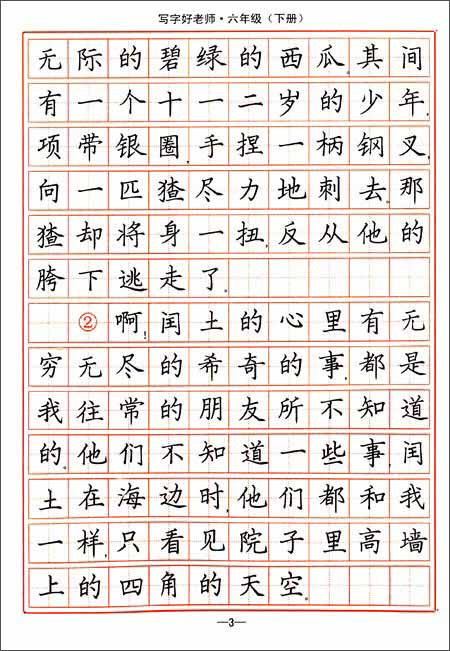 写字好老师·六年级（下册）
无际的碧绿的西瓜，其间
有一个十一二岁的少年，
项带银圈，手捏一柄钢叉，
向一匹猹尽力地刺去，那
猹却将身一扭，反从他的
胯下逃走了。
②啊！闰土的心里有无
穷无尽的希奇的事，都是
我往常的朋友所不知道
的。他们不知道一些事，闰
土在海边时，他们都和我
一样，只看见院子里高墙
上的四角的天空。
—3—